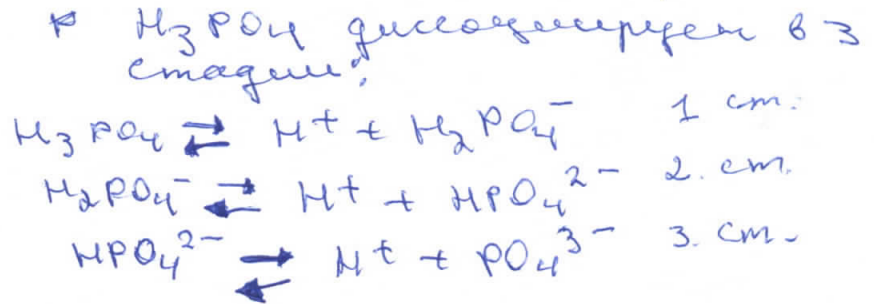 * H₃PO₄ диссоциирует в 3
стадии:
H₃PO₄ ⇄ H⁺ + H₂PO₄⁻ 1 ст.
H₂PO₄⁻ ⇄ H⁺ + HPO₄²⁻ 2. ст.
HPO₄²⁻ ⇄ H⁺ + PO₄³⁻ 3. ст.